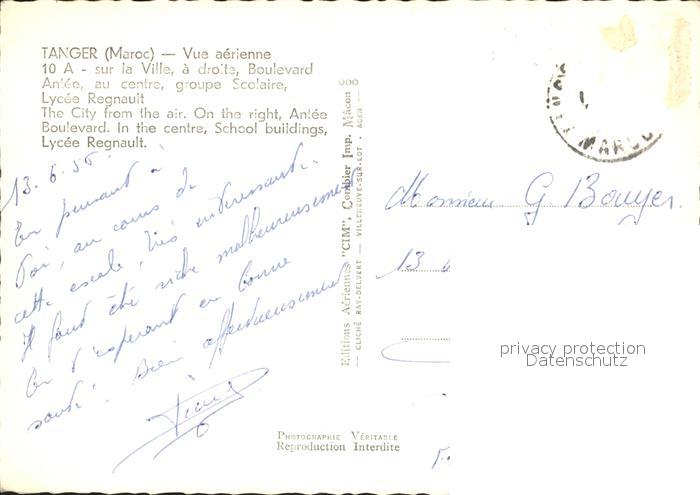 TANGER (Maroc) — Vue aérienne
10 A - sur la Ville, à droite, Boulevard
Antée, au centre, groupe Scolaire,
Lycée Regnault
The City from the air. On the right, Antée
Boulevard. In the centre, School buildings,
Lycée Regnault.
13.6.55.
En pensant à
toi, au cours de
cette escale, très intéressante.
Il faut être riche malheureusement
En t'espérant en bonne
santé. Bien affectueusement
Editions Aériennes "CIM", Combier Imp. Mâcon
— CLICHÉ RAY-DELVERT — VILLENEUVE-SUR-LOT - AGEN —
PHOTOGRAPHIE VÉRITABLE
Reproduction Interdite
MAROC
Monsieur G Bouyer.
13
privacy protection
Datenschutz